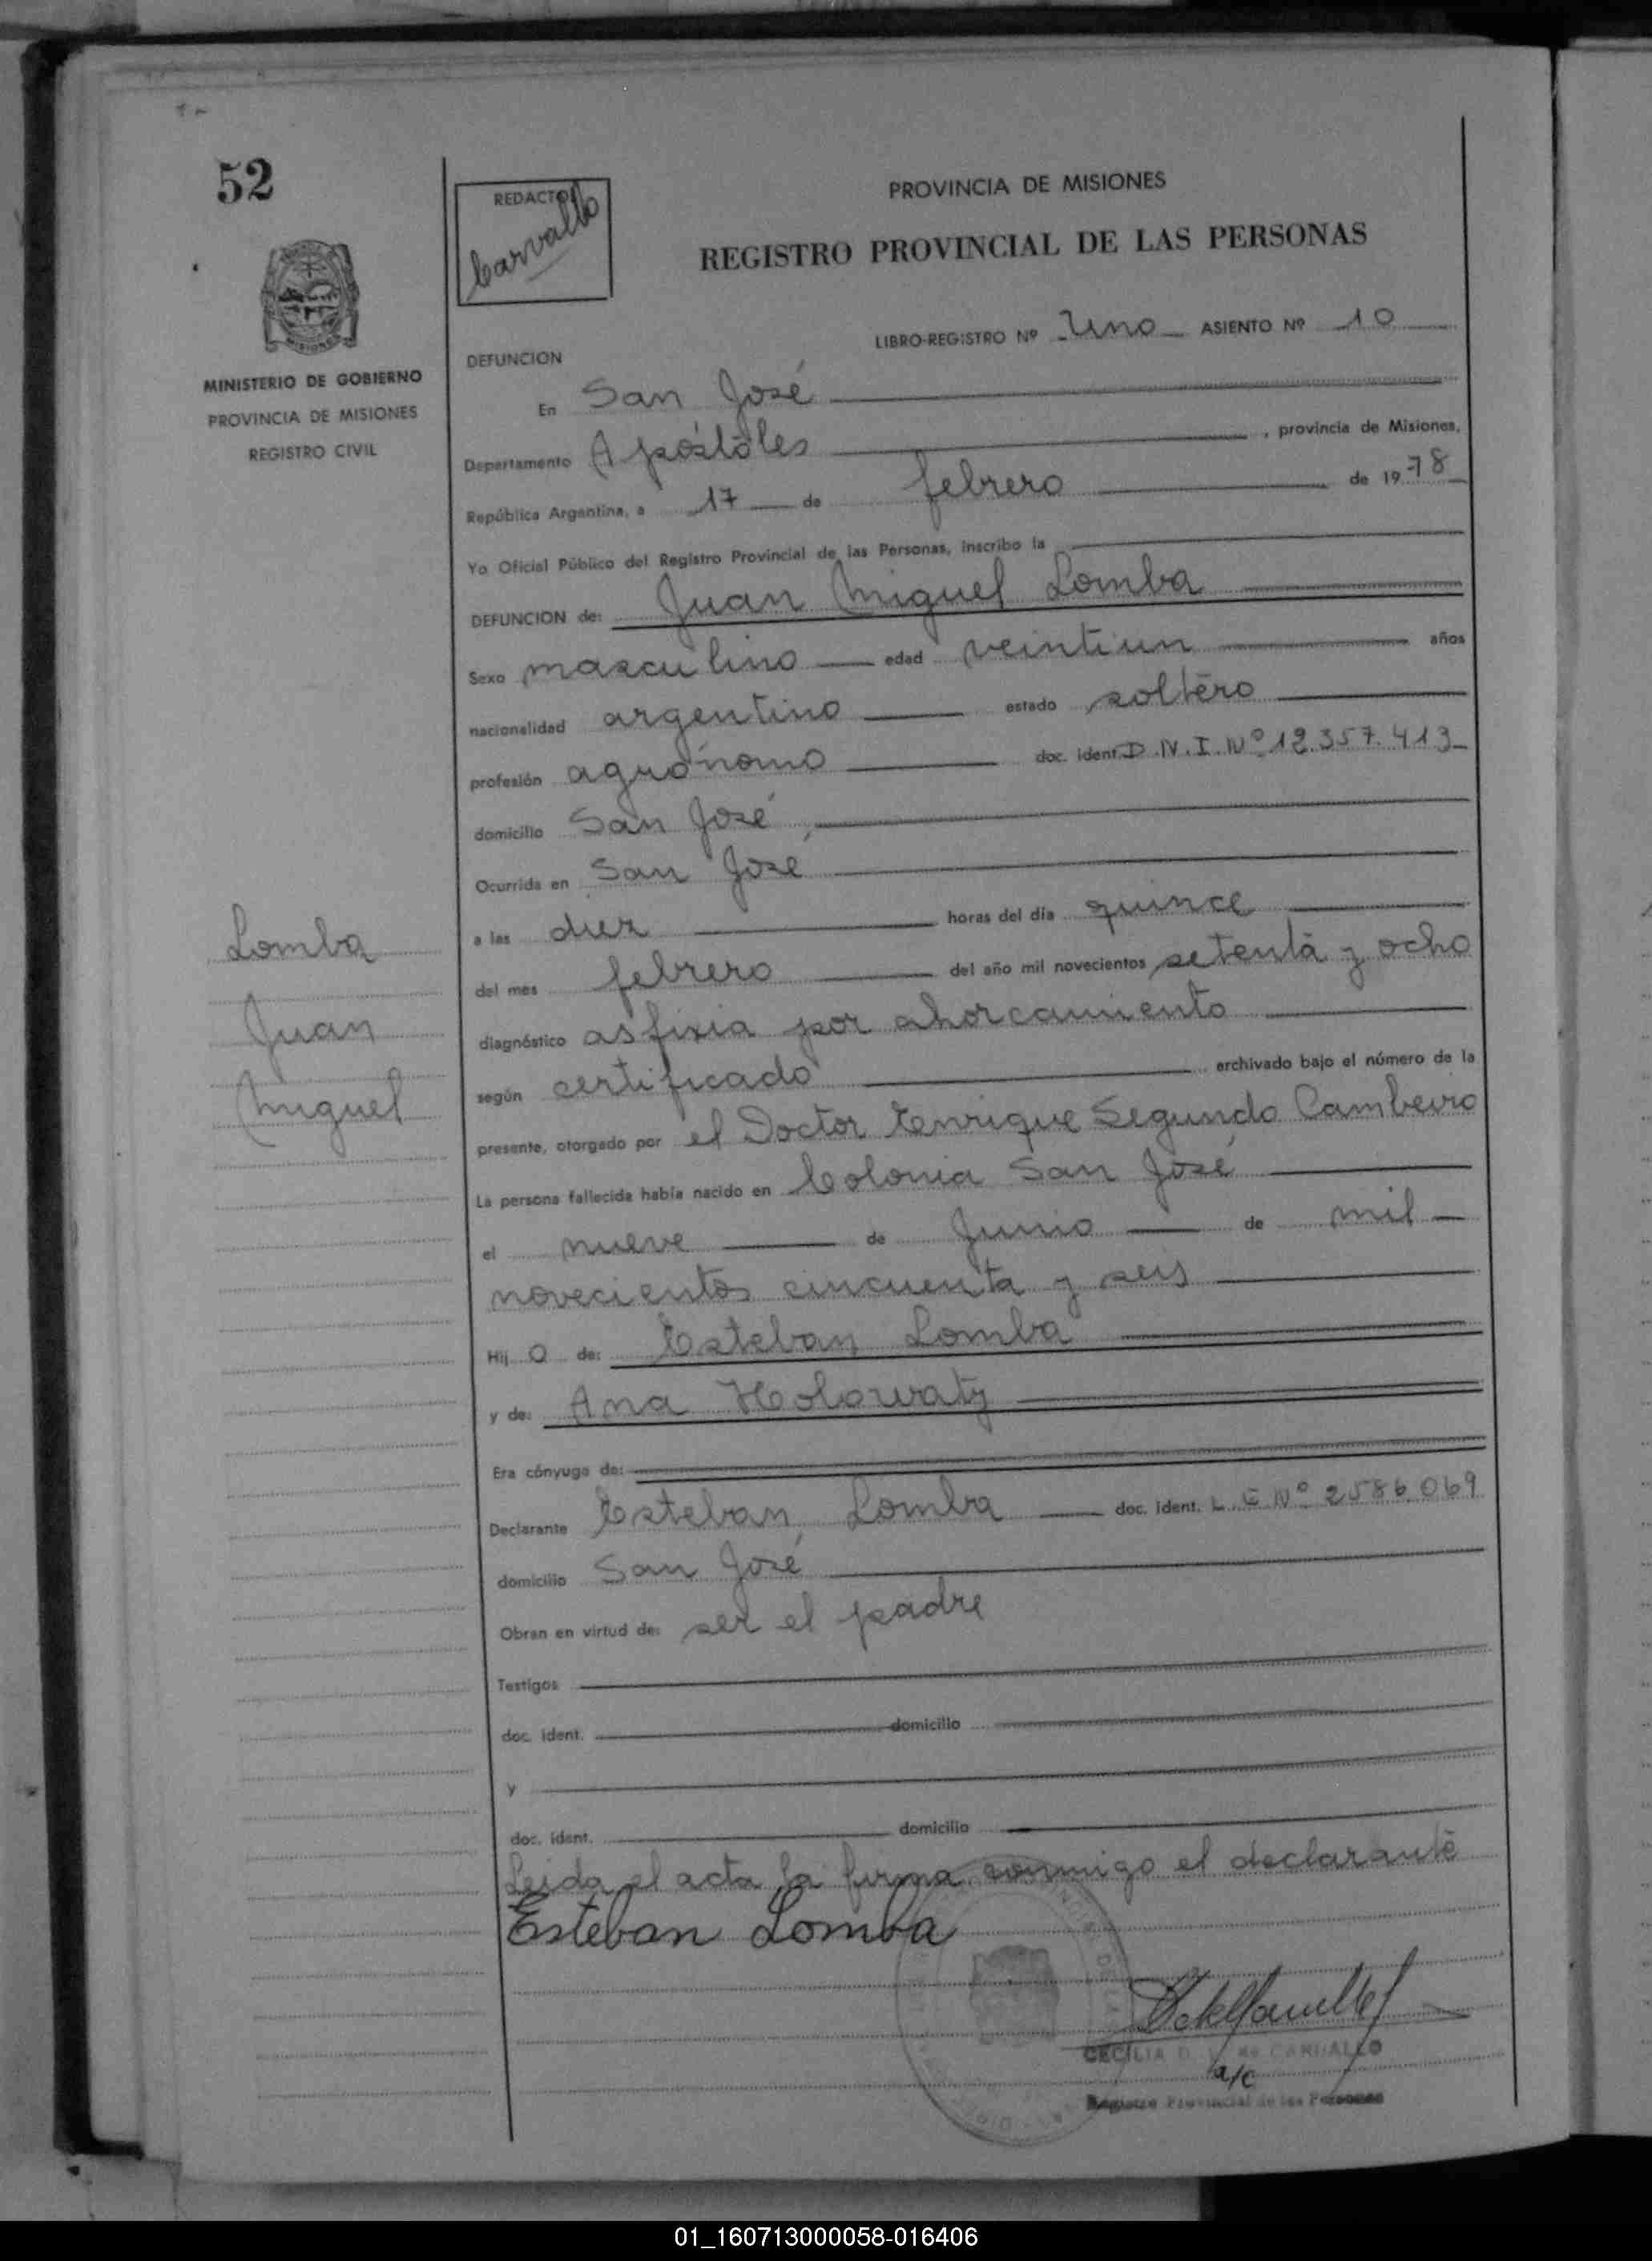 52
REDACTOR
Carvallo
PROVINCIA DE MISIONES
REGISTRO PROVINCIAL DE LAS PERSONAS
LIBRO-REGISTRO Nº Uno ASIENTO Nº 10
MINISTERIO DE GOBIERNO
PROVINCIA DE MISIONES
REGISTRO CIVIL
DEFUNCION
En San José
Departamento Apóstoles, provincia de Misiones,
República Argentina, a 17 de febrero de 1978
Yo Oficial Público del Registro Provincial de las Personas, inscribo la
DEFUNCION de: Juan Miguel Lomba
Sexo masculino edad veintiun años
nacionalidad argentino estado soltero
profesión agrónomo doc. ident. D.N.I. Nº 12.357.413
domicilio San José
Ocurrida en San José
a las diez horas del día quince
del mes febrero del año mil novecientos setenta y ocho
diagnóstico asfixia por ahorcamiento
según certificado archivado bajo el número de la
presente, otorgado por el Doctor Enrique Segundo Cambeiro
La persona fallecida había nacido en Colonia San José
el nueve de Junio de mil
novecientos cincuenta y seis
Hijo de: Esteban Lomba
y de: Ana Holowaty
Era cónyuge de:
Declarante Esteban Lomba doc. ident. L.E Nº 2586.069
domicilio San José
Obran en virtud de: ser el padre
Testigos
doc. ident. domicilio
y
doc. ident. domicilio
Leida el acta la firma conmigo el declarante
Esteban Lomba
Lomba
Juan
Miguel
CECILIA D. de CARVALLO
a/c
Registro Provincial de las Personas
01_160713000058-016406